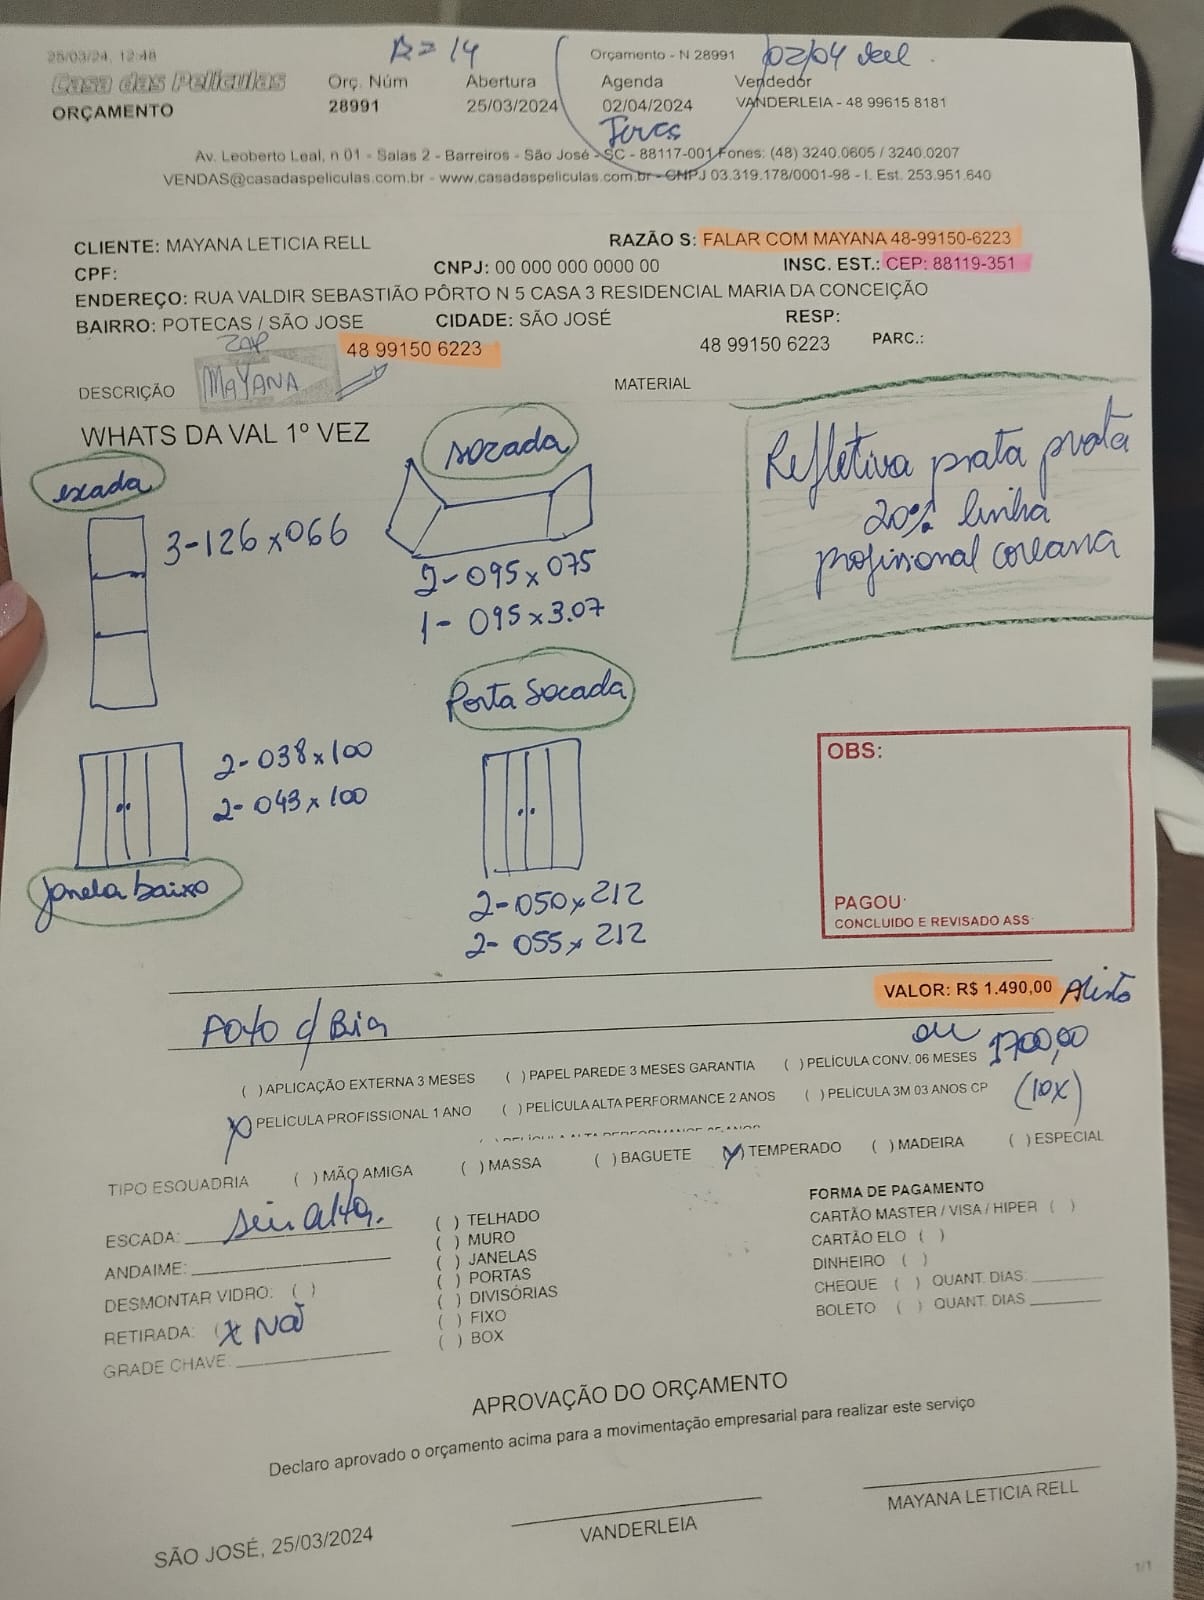 25/03/24, 12:48
R= 14
Orçamento - N 28991
02/04
Casa das Películas
Orç. Núm
Abertura
Agenda
Vendedor
ORÇAMENTO
28991
25/03/2024
02/04/2024
VANDERLEIA - 48 99615 8181
Av. Leoberto Leal, n 01 - Salas 2 - Barreiros - São José - SC - 88117-001 Fones: (48) 3240.0605 / 3240.0207
VENDAS@casadaspeliculas.com.br - www.casadaspeliculas.com.br - CNPJ 03.319.178/0001-98 - I. Est. 253.951.640
CLIENTE: MAYANA LETICIA RELL
RAZÃO S: FALAR COM MAYANA 48-99150-6223
CPF:
CNPJ: 00 000 000 0000 00
INSC. EST.: CEP: 88119-351
ENDEREÇO: RUA VALDIR SEBASTIÃO PÔRTO N 5 CASA 3 RESIDENCIAL MARIA DA CONCEIÇÃO
BAIRRO: POTECAS / SÃO JOSE
CIDADE: SÃO JOSÉ
RESP:
zap
48 99150 6223
48 99150 6223
PARC.:
DESCRIÇÃO
MAYANA
MATERIAL
WHATS DA VAL 1º VEZ
sozada
Refletiva prata prata
20% linha
profissional coreana
escada
3-126x066
2-095x075
1-095x3.07
Porta Socada
2-038x100
2-043x100
Janela baixo
2-050x212
2-055x212
OBS:
PAGOU:
CONCLUIDO E REVISADO ASS:
VALOR: R$ 1.490,00
Foto c/ Bia
ou 1700,00
(10x)
( ) APLICAÇÃO EXTERNA 3 MESES
( ) PAPEL PAREDE 3 MESES GARANTIA
( ) PELÍCULA CONV. 06 MESES
X PELÍCULA PROFISSIONAL 1 ANO
( ) PELÍCULA ALTA PERFORMANCE 2 ANOS
( ) PELÍCULA 3M 03 ANOS CP
TIPO ESQUADRIA
( ) MÃO AMIGA
( ) MASSA
( ) BAGUETE
X) TEMPERADO
( ) MADEIRA
( ) ESPECIAL
ESCADA: seis alta.
ANDAIME:
DESMONTAR VIDRO: ( )
RETIRADA: (x Não
GRADE CHAVE:
( ) TELHADO
( ) MURO
( ) JANELAS
( ) PORTAS
( ) DIVISÓRIAS
( ) FIXO
( ) BOX
FORMA DE PAGAMENTO
CARTÃO MASTER / VISA / HIPER ( )
CARTÃO ELO ( )
DINHEIRO ( )
CHEQUE ( ) QUANT. DIAS:
BOLETO ( ) QUANT. DIAS
APROVAÇÃO DO ORÇAMENTO
Declaro aprovado o orçamento acima para a movimentação empresarial para realizar este serviço
SÃO JOSÉ, 25/03/2024
VANDERLEIA
MAYANA LETICIA RELL
1/1